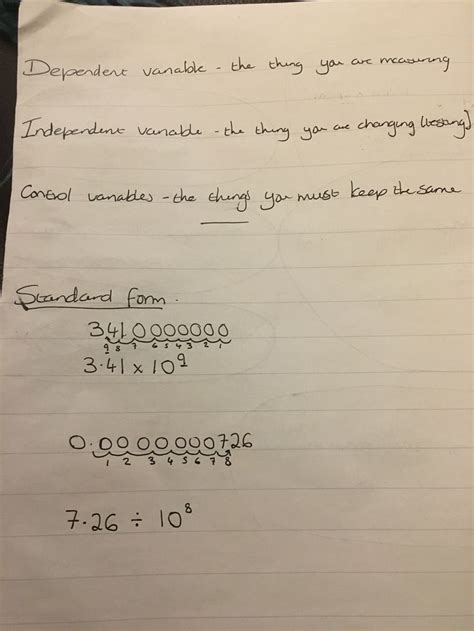 Dependent variable - the thing you are measuring
Independent variable - the thing you are changing (testing)
Control variables - the things you must keep the same
Standard form.
3410000000
9 8 7 6 5 4 3 2 1
3.41 x 10⁹
0.0000000726
1 2 3 4 5 6 7 8
7.26 ÷ 10⁸